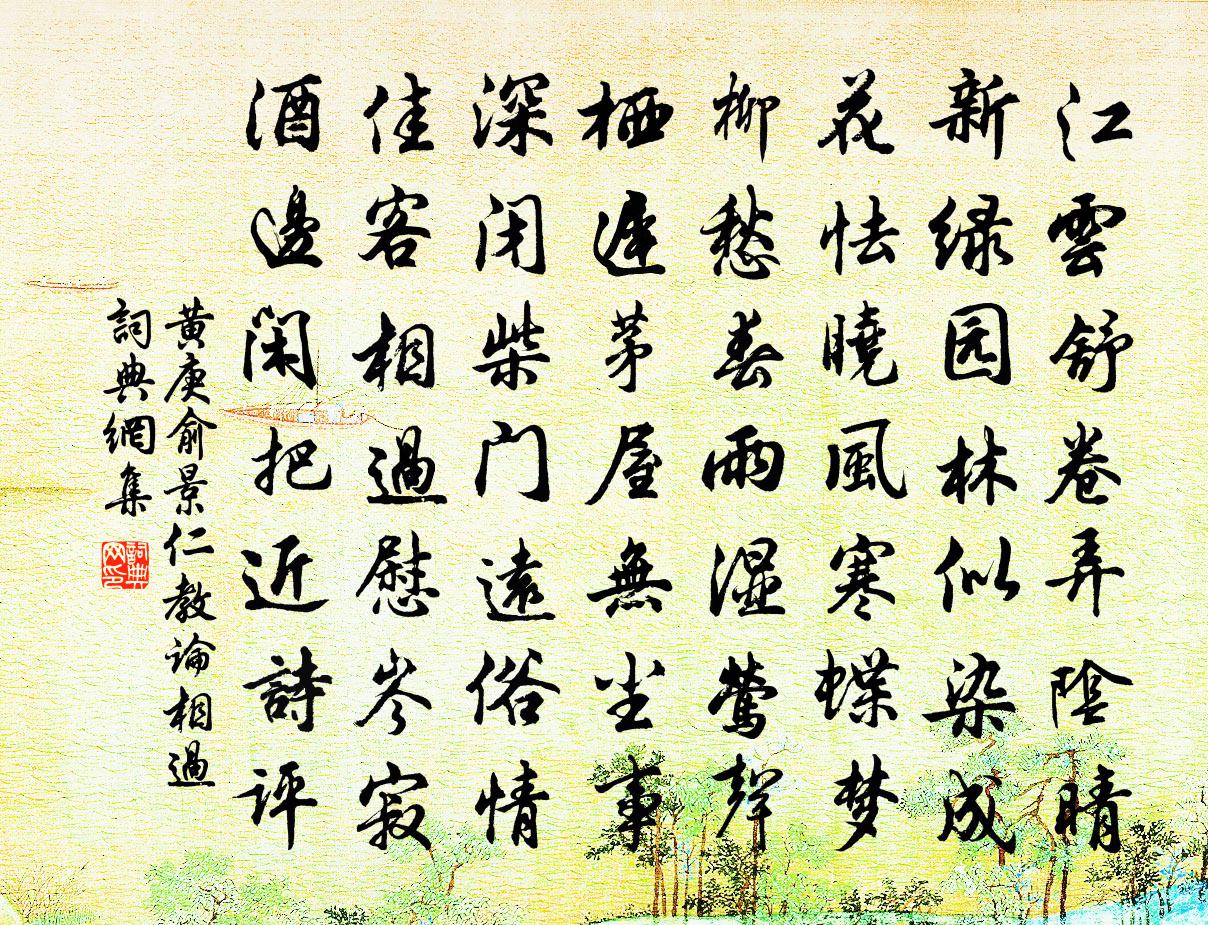 江雲舒卷弄陰晴
新绿园林似染成
花怯曉風寒蝶梦
柳愁春雨湿莺聲
栖遲茅屋無尘事
深闭柴门遠俗情
佳客相過慰岑寂
酒邊闲把近詩评
黄庚俞景仁教論相過
詞典網集
詞典网印